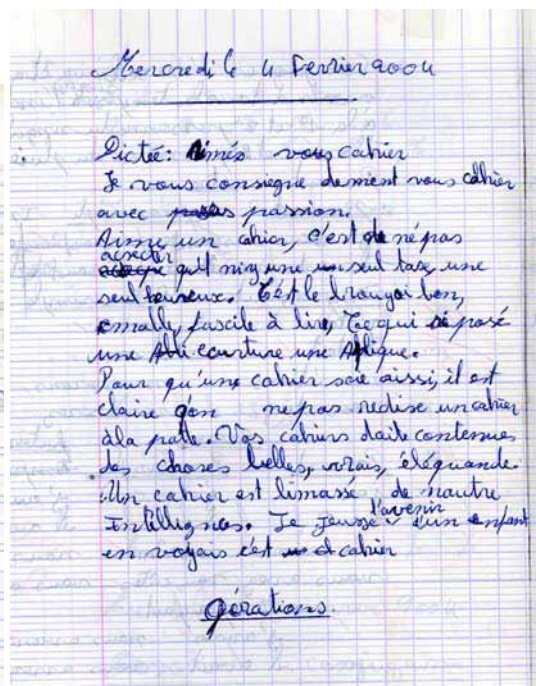 Mercredi le 4 Ferrier 2004
Dictée: Aimés vous cahier
Je vous consiegne dement vous cahier
avec passion.
Aime un cahier, c'est de né pas
acsecter qu'il niy une seul taxe, une
seul heureux. C'est le brouyoi bon,
emally, fascile à lire, Ce qui si posé
une écurture une Aplique.
Pour qu'une cahier soie aissi, il est
claire qon ne pas redise un cahier
à la patte. Vos cahiers doite contenues
des choses belles, vrais, éléguande.
Un cahier est limassé de nautre
Intellignces. Je jeusse l'avenir d'un enfant
en voyais c'est et cahier
Opérations.